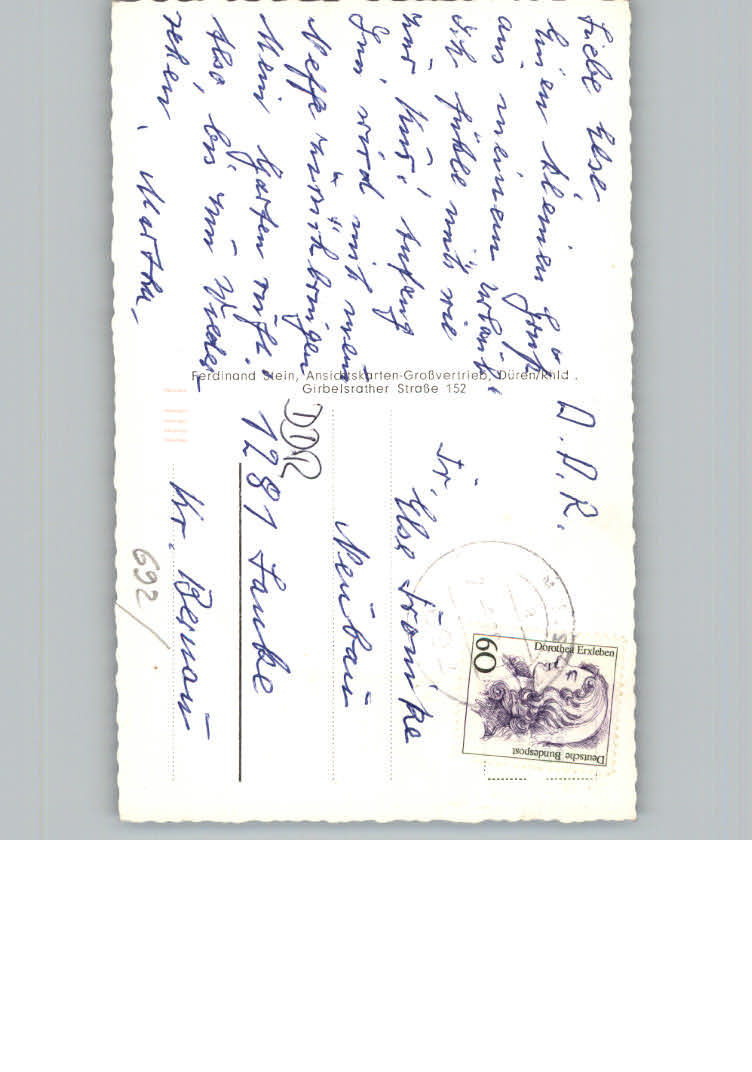 Liebe Else
Einen kleinen Gruß
aus meinem Urlaub.
Ich fühle mich wie
zur Kur! Anfang
Juni wird mich mein
Neffe zurückbringen
Mein Garten ruft.
Also, bis zum Wieder-
sehen, Martha.
Ferdinand Stein, Ansichtskarten-Großvertrieb, Düren/Rhld.
Girbelsrather Straße 152
D.D.R.
Fr.
Else Fronike
Neubau
1281 Lanke
DDR
Kr. Bernau
692
Dorothea Erxleben
60
Deutsche Bundespost